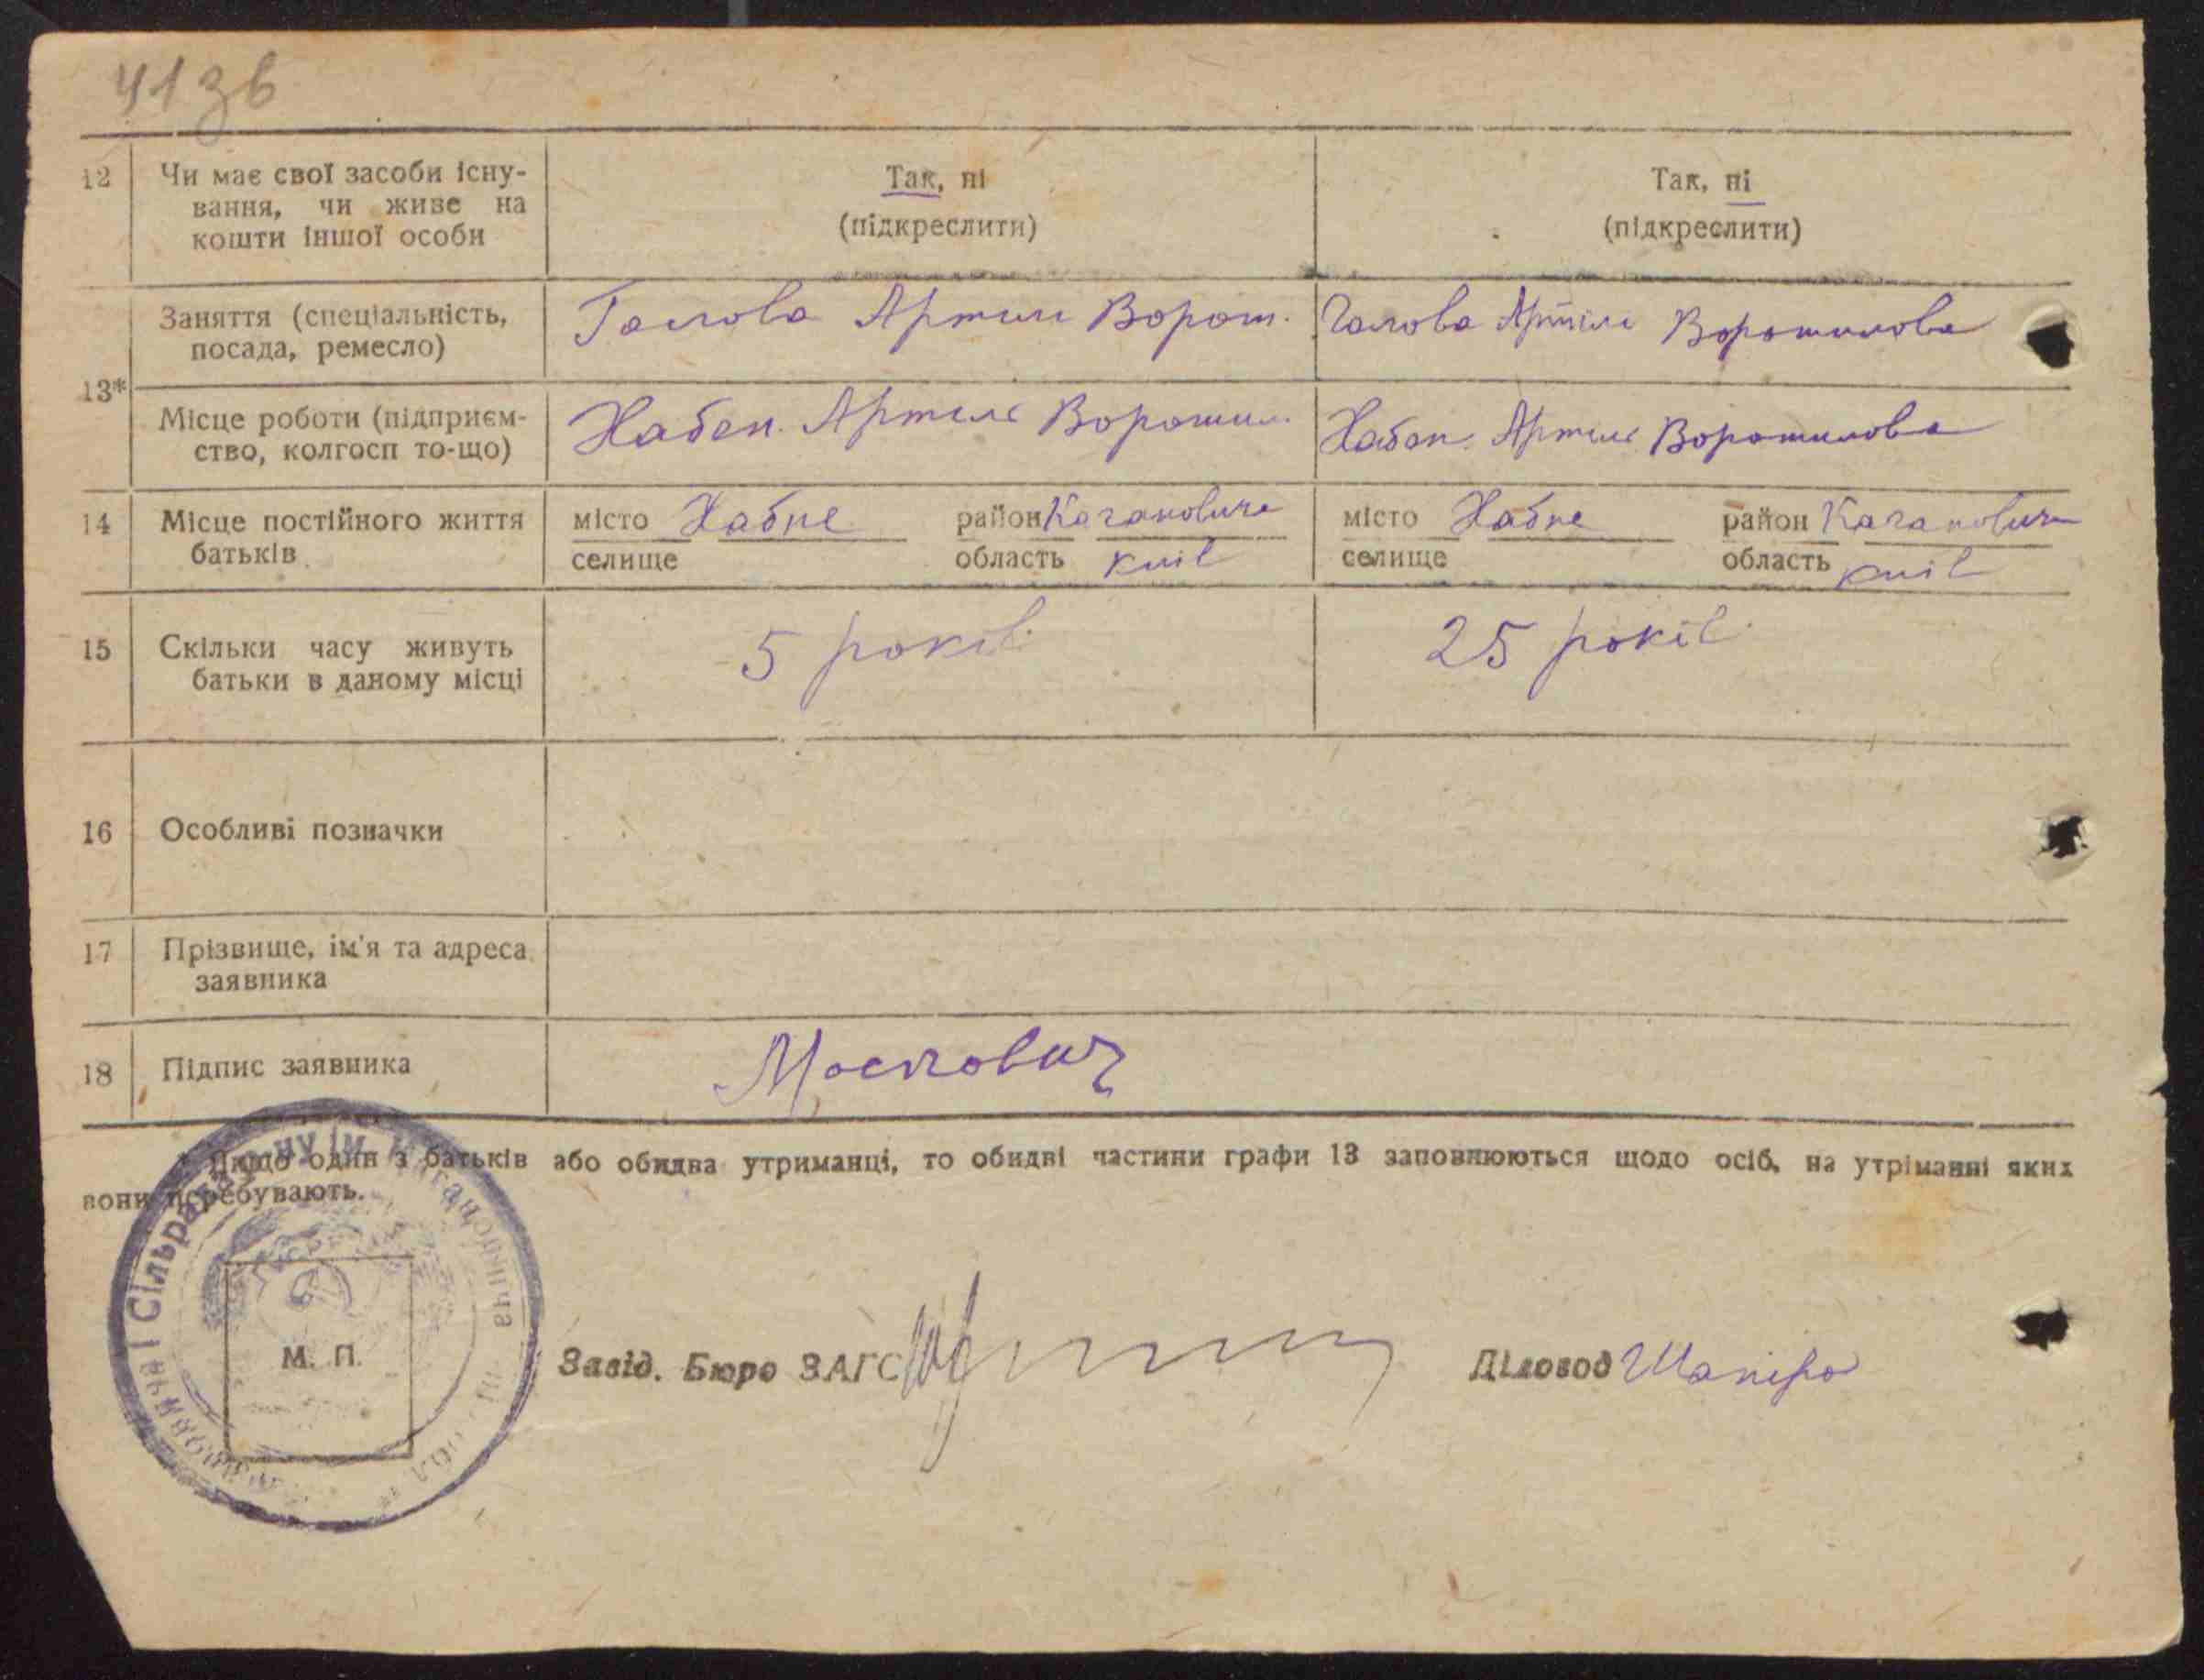 41зв
12 Чи має свої засоби існу- Так, ні Так, ні
вання, чи живе на (підкреслити) (підкреслити)
кошти іншої особи
13* Заняття (спеціальність, Голова Артили Ворош. Голова Артіли Ворошилова
посада, ремесло)
Місце роботи (підприєм- Хабен. Артиль Ворошил. Хабен. Артиль Ворошилова
ство, колгосп то-що)
14 Місце постійного життя місто Хабне район Кагановича місто Хабне район Кагановича
батьків селище область Київ селище область Київ
15 Скільки часу живуть 5 років 25 років
батьки в даному місці
16 Особливі позначки
17 Прізвище, ім'я та адреса
заявника
18 Підпис заявника Москович
* Якщо один з батьків або обидва утриманці, то обидві частини графи 13 заповнюються щодо осіб, на утріманні яких
вони перебувають.
М. П.
Завід. Бюро ЗАГС Діловод Шапіро